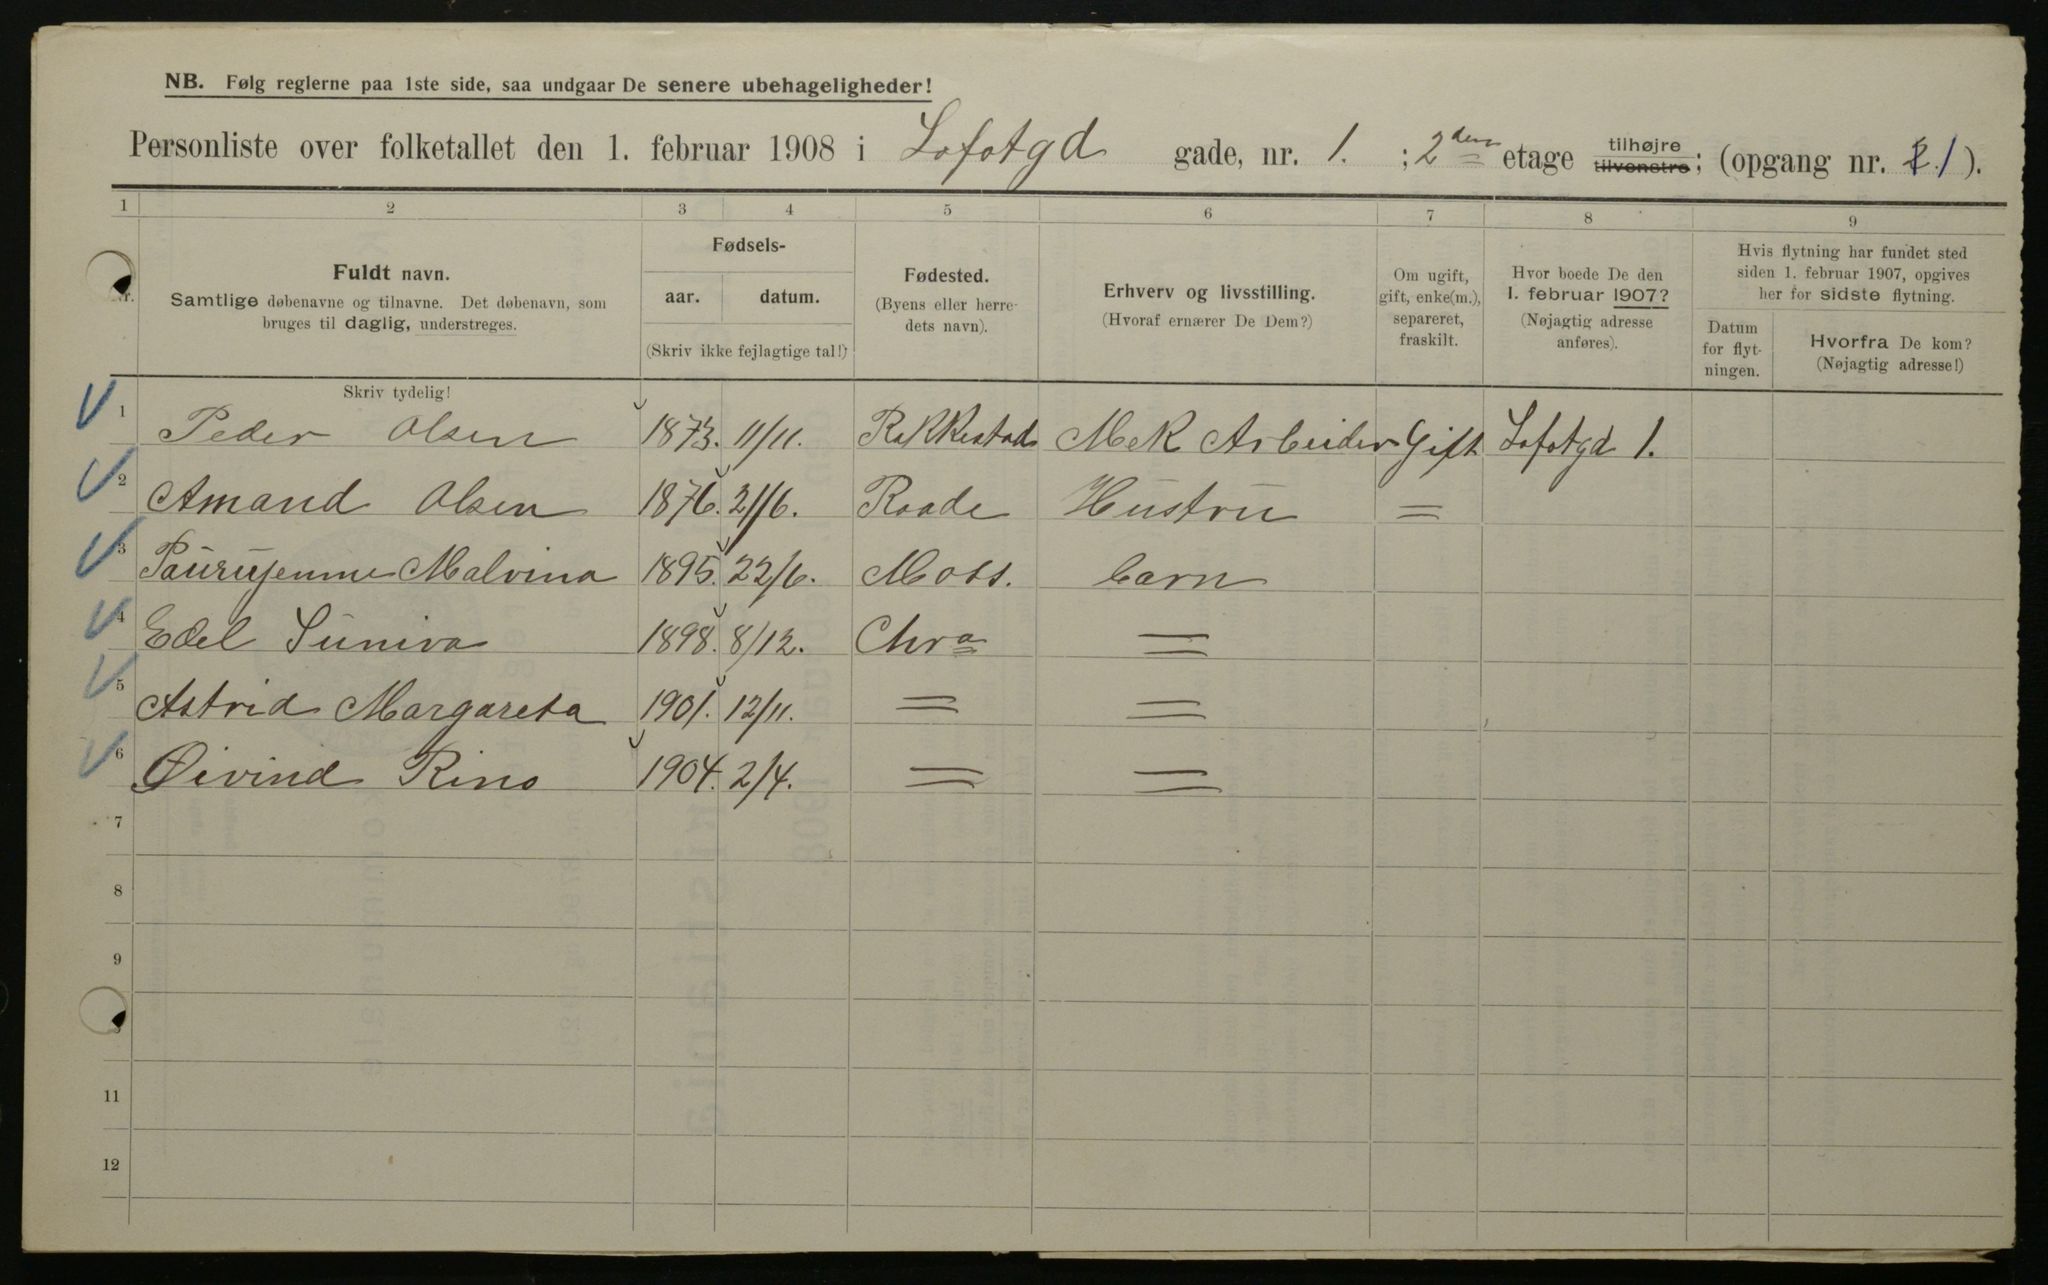 NB. Følg reglerne paa 1ste side, saa undgaar De senere ubehageligheder!
Personliste over folketallet den 1. februar 1908 i Lofotgd gade, nr. 1. ; 2den etage tilhøjre tilvenstre; (opgang nr. 1).
1 2 3 4 5 6 7 8 9
Nr.
Fuldt navn.
Samtlige døbenavne og tilnavne. Det døbenavn, som
bruges til daglig, understreges.
Fødsels-
aar. datum.
(Skriv ikke fejlagtige tal!)
Fødested.
(Byens eller herre-
dets navn).
Erhverv og livsstilling.
(Hvoraf ernærer De Dem?)
Om ugift,
gift, enke(m.),
separeret,
fraskilt.
Hvor boede De den
1. februar 1907?
(Nøjagtig adresse
anføres).
Hvis flytning har fundet sted
siden 1. februar 1907, opgives
her for sidste flytning.
Datum
for flyt-
ningen.
Hvorfra De kom?
(Nøjagtig adresse!)
Skriv tydelig!
1 Peder Olsen 1873. 11/11. Rakkestad Mek Arbeider Gift Lofotgd 1.
2 Amand Olsen 1876. 21/6. Raade Hustru =
3 Malvina 1895. 22/6. Moss. barn
4 Edel Suniva 1898. 8/12. Chra =
5 Astrid Margareta 1901. 12/11. = =
6 Øivind Rino 1904. 2/4. = =
7
8
9
11
12